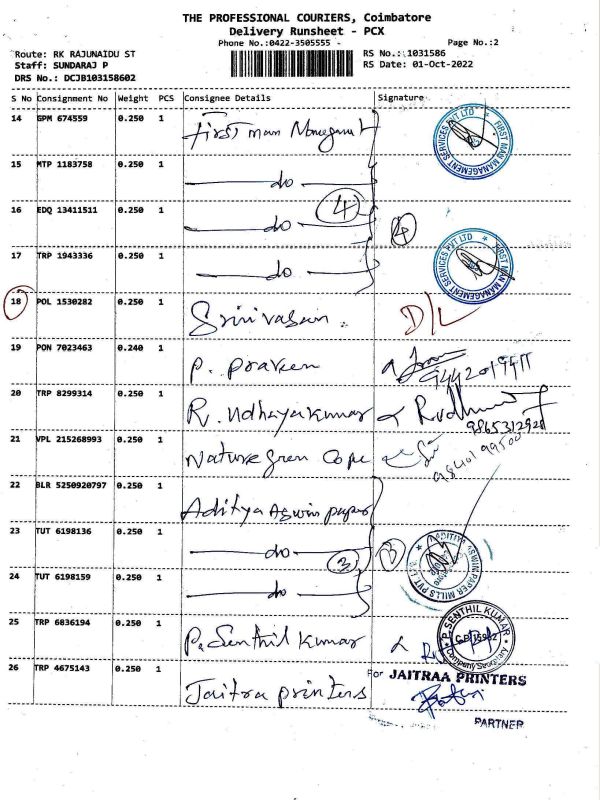 THE PROFESSIONAL COURIERS, Coimbatore
Delivery Runsheet - PCX
Phone No.:0422-3505555 - Page No.:2
Route: RK RAJUNAIDU ST RS No.:1031586
Staff: SUNDARAJ P RS Date: 01-Oct-2022
DRS No.: DCJB103158602
S No Consignment No Weight PCS Consignee Details Signature
14 GPM 674559 0.250 1 First man Management
FIRST MAN MANAGEMENT SERVICES PVT LTD
15 MTP 1183758 0.250 1 do
16 EDQ 13411511 0.250 1 do 4 4
17 TRP 1943336 0.250 1 do
FIRST MAN MANAGEMENT SERVICES PVT LTD
18 POL 1530282 0.250 1 Srinivasan D/L
19 PON 7023463 0.240 1 P. Praveen
20 TRP 8299314 0.250 1 R. Udhayakumar
9865312928
21 VPL 215268993 0.250 1 Nature green Cope
9840199500
22 BLR 5250920797 0.250 1 Aditya Aswin paper
23 TUT 6198136 0.250 1 do 3 3
ADITYA ASWIN PAPER MILLS PVT LTD
24 TUT 6198159 0.250 1 do
25 TRP 6836194 0.250 1 P. Senthil Kumar
P. SENTHIL KUMAR
Company Secretary
26 TRP 4675143 0.250 1 Jaitra printers
For JAITRAA PRINTERS
PARTNER